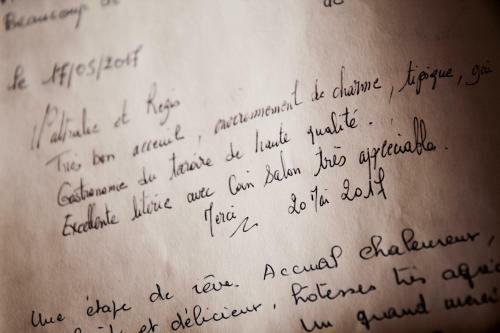 Beaucoup de
de
le 17/05/2017
Nathalie et Régis
Très bon acceuil, environnement de charme, tipique,
Gastronomie du terroire de haute qualité.
Excellente literie avec Coin Salon très appréciable.
Merci 20 Mai 2017
Une étape de rêve. Accueil chaleureux,
et délicieux. hotesses très
Un grand merci